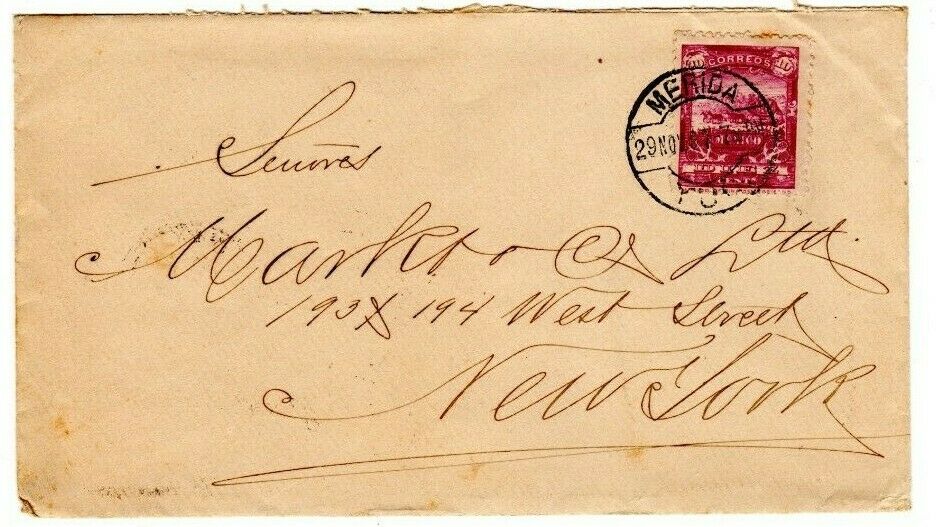 10 CORREOS 10
MERIDA
29 NOV
YUC
Señores
Markt & Co Ltd
193 & 194 West Street
New York